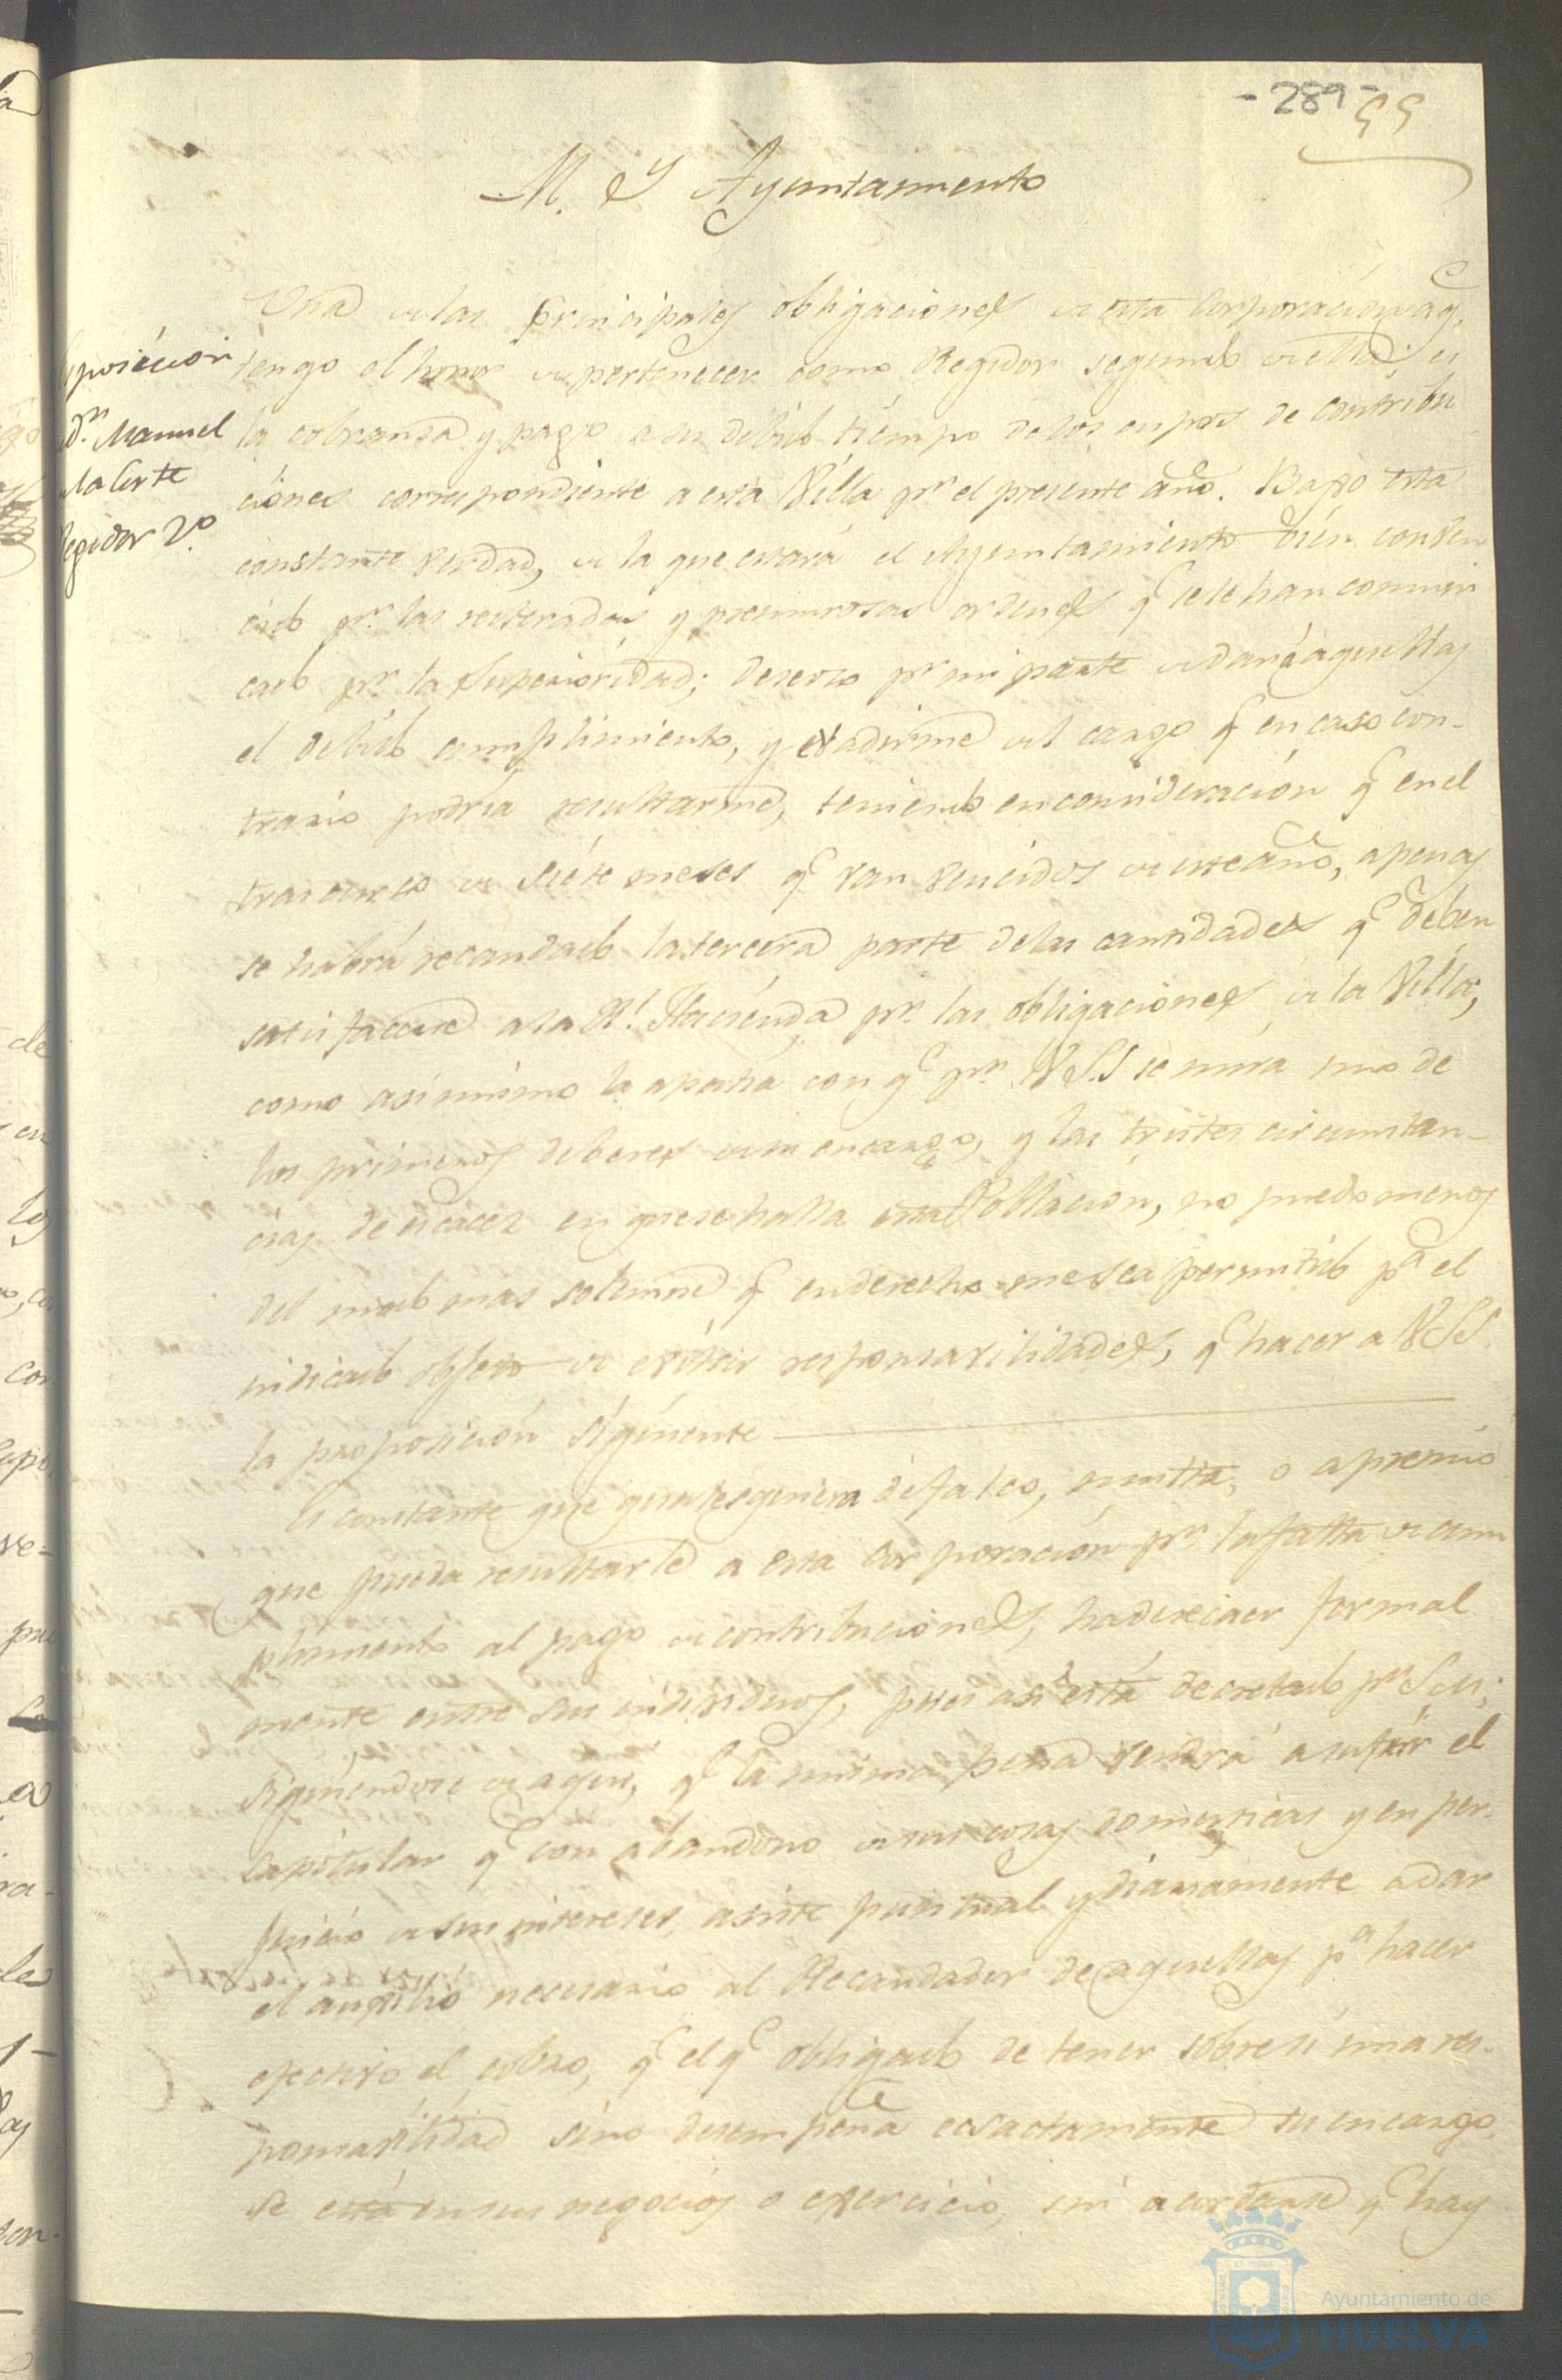 - 289 - 55
M. Y Ayuntamiento
Una de las principales obligaciones de esta Corporación aq.e
tengo el honor de pertenecer como Regidor segundo de ella; es
la cobranza y pago a su debido tiempo de los cupos de contribu
ciones correspondiente a esta Villa pr. el presente año. Bajo esta
constante verdad, de la que estará el Ayuntamiento bien conven
cido pr. las reiteradas y premurosas ordenes q.e se le han comuni
cado pr. la Superioridad; deseoso pr. mi parte de dar á aquellas
el debido cumplimiento, y evadirme del cargo q.e en caso con-
trario podria resultarme, teniendo en consideración q.e en el
trascurso de siete meses q.e van vencidos de este año, apenas
se habrá recaudado la tercera parte de las cantidades q.e deben
satisfacerse a la Rl. Hacienda pr. las obligaciones de la Villa,
como asi mismo la apatia con q.e pr. VSS se mira uno de
los primeros deberes de su encargo, y las tristes circunstan-
cias de escasez en que se halla esta Poblacion, no puedo menos
del modo mas solemne q.e en derecho me sea permitido pa. el
indicado objeto de evitar responsavilidades, q.e hacer a VSS.
la proposición siguiente
Es constante que qualesquiera defalco, multa, o apremio
que pueda resultarle a esta Corporación pr. la falta de cum
plimiento al pago de contribuciones, ha de recaer formal
mente entre sus individuos, pues asi está decretado pr. S.M.;
siguiendose de aqui, q.e la misma pena vendrá a sufrir el
capitular q.e con abandono de sus cosas domesticas y en per-
juicio de sus intereses, asiste puntual y diariamente a dar
el auxilio necesario al Recaudador de aquellas pa. hacer
efectivo el cobro, q.e el q.e obligado de tener sobre si una res-
ponsavilidad sino desempeña ecsactamente su encargo,
se está en sus negocios o exercicio, sin acordarse q.e hay
Esposicion
Dn. Manuel
de la Corte
Regidor 2º.
Ayuntamiento de
HUELVA